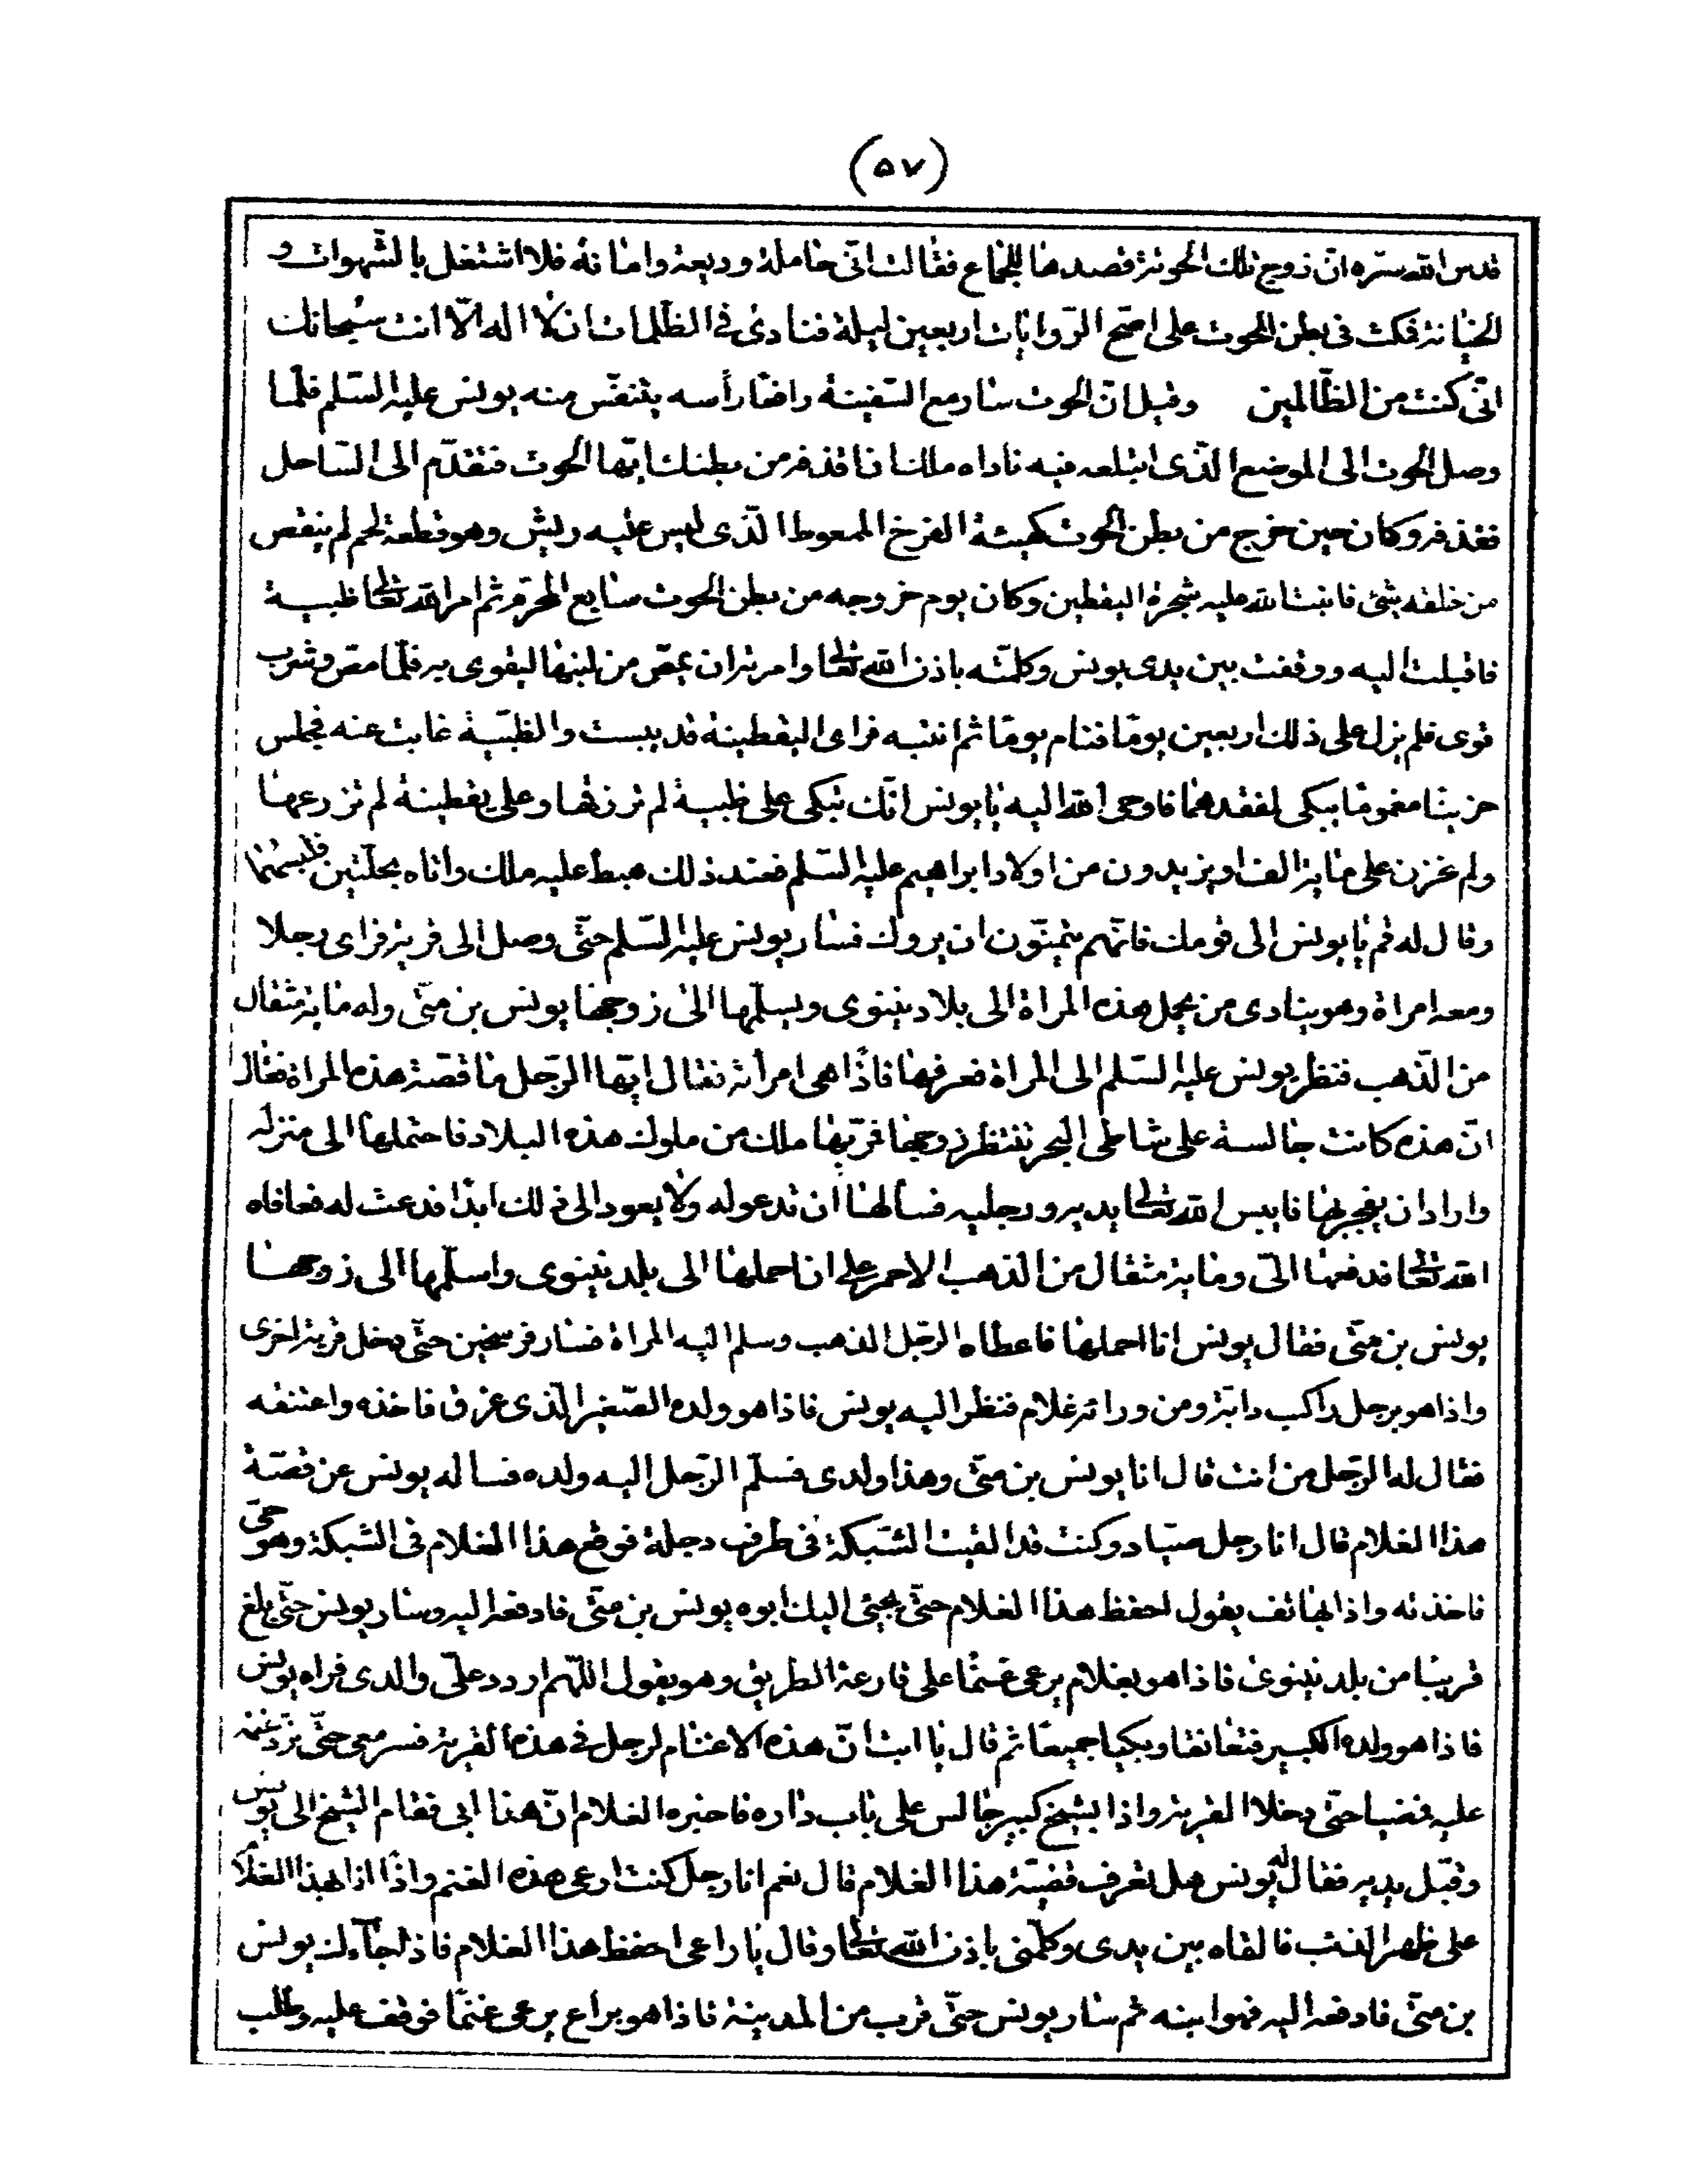 (۵۷)
قدس الله سره ان زوج تلك الحوتة قصدها للجماع فقالت انّى حاملة وديعة وامانة فلا اشتغل بالشّهوات و
الخيانة فمكث فى بطن الحوت على اصحّ الرّوايات اربعين ليلة فنادى فى الظّلمات ان لا اله الّا انت سبحانك
انّى كنت من الظّالمين وقيل انّ الحوت سار مع السّفينة رافعًا رأسه يتنفّس منه يونس عليه السّلم فلمّا
وصل الحوت الى الموضع الّذى ابتلعه فيه ناداه ملك فاقذفه من بطنك ايّها الحوت فتقدّم الى السّاحل
فقذفه وكان حين خرج من بطن الحوت كهيئة الفرخ الممعوط الّذى ليس عليه ريش وهو قطعة لحم لم ينقص
من خلقه بشئ فانبت الله عليه شجرة اليقطين وكان يوم خروجه من بطن الحوت سابع المحرّم ثم امر الله تعالى ظبية
فاقبلت اليه ووقفت بين يدى يونس وكلّمته باذن الله تعالى وامرته ان يمصّ من لبنها ليقوى به فلمّا مصّ وشرب
قوى فلم يزل على ذلك اربعين يومًا فنام يومًا ثم انتبه فراى اليقطينة قد يبست والظّبية غابت عنه فجلس
حزينًا مغمومًا يبكى لفقدهما فاوحى الله اليه يا يونس انّك تبكى على ظبية لم ترزقها وعلى يقطينة لم تزرعها
ولم تحزن على مائة الف او يزيدون من اولاد ابراهيم عليه السّلم فعند ذلك هبط عليه ملك واتاه بحلّتين فلبسهما
وقال له قم يا يونس الى قومك فانّهم يتمنّون ان يروك فسار يونس عليه السّلم حتّى وصل الى قرية فراى رجلا
ومعه امراة وهو ينادى من يحمل هذه المراة الى بلاد نينوى ويسلّمها الى زوجها يونس بن متّى وله مائة مثقال
من الذّهب فنظر يونس عليه السّلم الى المراة فعرفها فاذا هى امرأته فقال ايّها الرّجل ما قصة هذه المراة فقال
انّ هذه كانت جالسة على شاطى البحر تنتظر زوجها فمرّ بها ملك من ملوك هذه البلاد فاحتملها الى منزله
واراد ان يفجر بها فايبس الله تعالى يديه ورجليه فسالها ان تدعو له ولا يعود الى ذلك ابدًا فدعت له فعافاه
الله تعالى فدفعها الىّ ومائة مثقال من الذهب الاحمر على ان احملها الى بلد نينوى واسلّمها الى زوجها
يونس بن متّى فقال يونس انا احملها فاعطاه الرجل الذهب وسلم اليه المراة فسار فرسخين حتّى دخل قرية اخرى
واذا هو برجل راكب دابّة ومن ورائه غلام فنظر اليه يونس فاذا هو ولده الصّغير الّذى غرق فاخذه واعتنقه
فقال له الرّجل من انت قال انا يونس بن متّى وهذا ولدى فسلّم الرّجل اليه ولده فساله يونس عن قصّة
هذا الغلام قال انا رجل صيّاد وكنت قد القيت الشّبكة فى طرف دجلة فوقع هذا الغلام فى الشبكة وهو حىّ
فاخذته واذا بهاتف يقول احفظ هذا الغلام حتّى يجئ اليك ابوه يونس بن متّى فادفعه اليه وسار يونس حتّى بلغ
قريبًا من بلد نينوى فاذا هو بغلام يرعى غنمًا على قارعة الطريق وهو يقول اللّهم اردد علىّ والدى فراه يونس
فاذا هو ولده الكبير فتعانقا وبكيا جميعًا ثم قال يا ابت انّ هذه الاغنام لرجل فى هذه القرية فسر معى حتّى نردّ غنمه
عليه فمضيا حتّى دخلا القرية واذا بشيخ كبير جالس على باب داره فاخبره الغلام انّ هذا ابى فقام الشيخ الى يونس
وقبّل يديه فقال له يونس هل تعرف قضيّة هذا الغلام قال نعم انا رجل كنت ارعى هذه الغنم واذا انا بهذا الغلام
على ظهر الذئب فالقاه بين يدى وكلّمنى باذن الله تعالى وقال يا راعى احفظ هذا الغلام فاذا جآءك يونس
بن متّى فادفعه اليه فهو ابنه ثم سار يونس حتّى قرب من المدينة فاذا هو براع يرعى غنمًا فوقف عليه وطلب